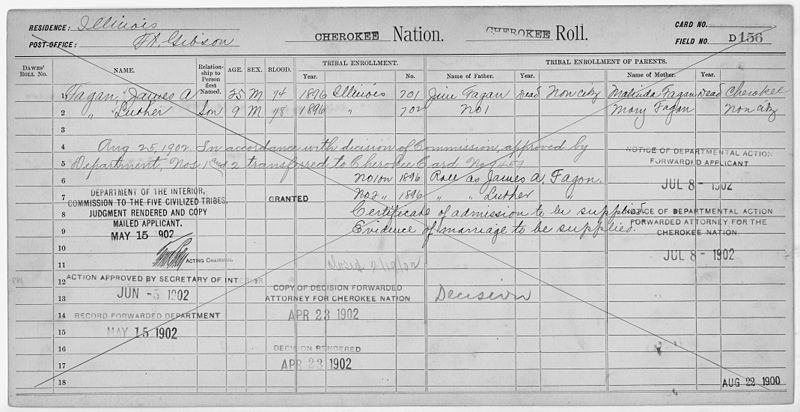 RESIDENCE: Illinois
POST-OFFICE: Ft. Gibson
CHEROKEE Nation. CHEROKEE Roll.
CARD NO.
FIELD NO. D 156
DAWES' ROLL NO. NAME. Relationship to Person first Named. AGE. SEX. BLOOD. TRIBAL ENROLLMENT. TRIBAL ENROLLMENT OF PARENTS.
Year. No. Name of Father. Year. Name of Mother. Year.
1 Fagan, James A 35 M 1/4 1896 Illinois 701 Jim Fagan Dead Non city Malinda Fagan Dead Cherokee
2 " Luther Son 9 M 1/8 1896 " 702 No1 Mary Fagan Non city
3
4 Aug. 25, 1902. In accordance with decision of Commission, approved by
5 Department, Nos 1 and 2 transferred to Cherokee Card No.
NOTICE OF DEPARTMENTAL ACTION FORWARDED APPLICANT
JUL 8 - 1902
6 No1 on 1896 Roll as James A. Fagon
7 No.2 " 1896 " " Luther "
DEPARTMENT OF THE INTERIOR,
COMMISSION TO THE FIVE CIVILIZED TRIBES,
JUDGMENT RENDERED AND COPY
MAILED APPLICANT.
MAY 15 902
ACTING CHAIRMAN.
GRANTED
8 Certificate of admission to be supplied
9 Evidence of marriage to be supplied.
NOTICE OF DEPARTMENTAL ACTION
FORWARDED ATTORNEY FOR THE
CHEROKEE NATION
JUL 8 - 1902
10
11
12 ACTION APPROVED BY SECRETARY OF INTERIOR
JUN -3 1902
13 COPY OF DECISION FORWARDED
ATTORNEY FOR CHEROKEE NATION
APR 23 1902
Decision
14 RECORD FORWARDED DEPARTMENT
15 MAY 15 1902
16 DECISION RENDERED
17 APR 23 1902
18 AUG 22 1900